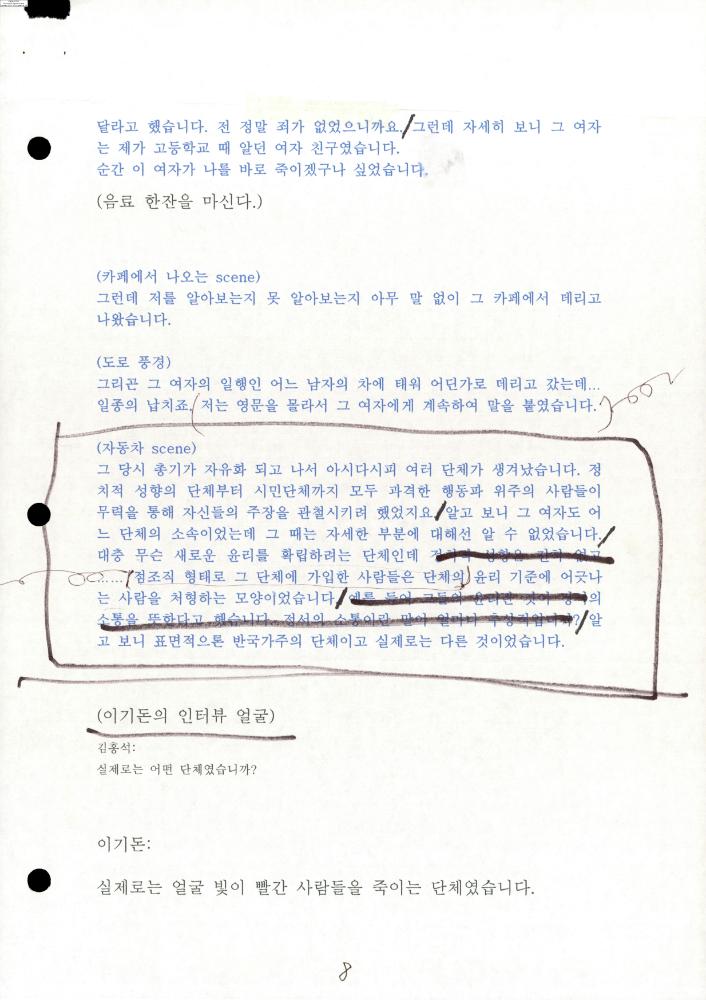 달라고 했습니다. 전 정말 죄가 없었으니까요. 그런데 자세히 보니 그 여자
는 제가 고등학교 때 알던 여자 친구였습니다.
순간 이 여자가 나를 바로 죽이겠구나 싶었습니다.
(음료 한잔을 마신다.)
(카페에서 나오는 scene)
그런데 저를 알아보는지 못 알아보는지 아무 말 없이 그 카페에서 데리고
나왔습니다.
(도로 풍경)
그리곤 그 여자의 일행인 어느 남자의 차에 태워 어딘가로 데리고 갔는데...
일종의 납치죠. 저는 영문을 몰라서 그 여자에게 계속하여 말을 붙였습니다.
(자동차 scene)
그 당시 총기가 자유화 되고 나서 아시다시피 여러 단체가 생겨났습니다. 정
치적 성향의 단체부터 시민단체까지 모두 과격한 행동파 위주의 사람들이
무력을 통해 자신들의 주장을 관철시키려 했었지요. 알고 보니 그 여자도 어
느 단체의 소속이었는데 그 때는 자세한 부분에 대해선 알 수 없었습니다.
대충 무슨 새로운 윤리를 확립하려는 단체인데
...... 점조직 형태로 그 단체에 가입한 사람들은 단체의 윤리 기준에 어긋나
는 사람을 처형하는 모양이었습니다.
소통을 뜻한다고 했습니다. 정서의 소통이란 말이 얼마나 추상적입니까? 알
고 보니 표면적으론 반국가주의 단체이고 실제로는 다른 것이었습니다.
(이기돈의 인터뷰 얼굴)
김홍석:
실제로는 어떤 단체였습니까?
이기돈:
실제로는 얼굴 빛이 빨간 사람들을 죽이는 단체였습니다.
8